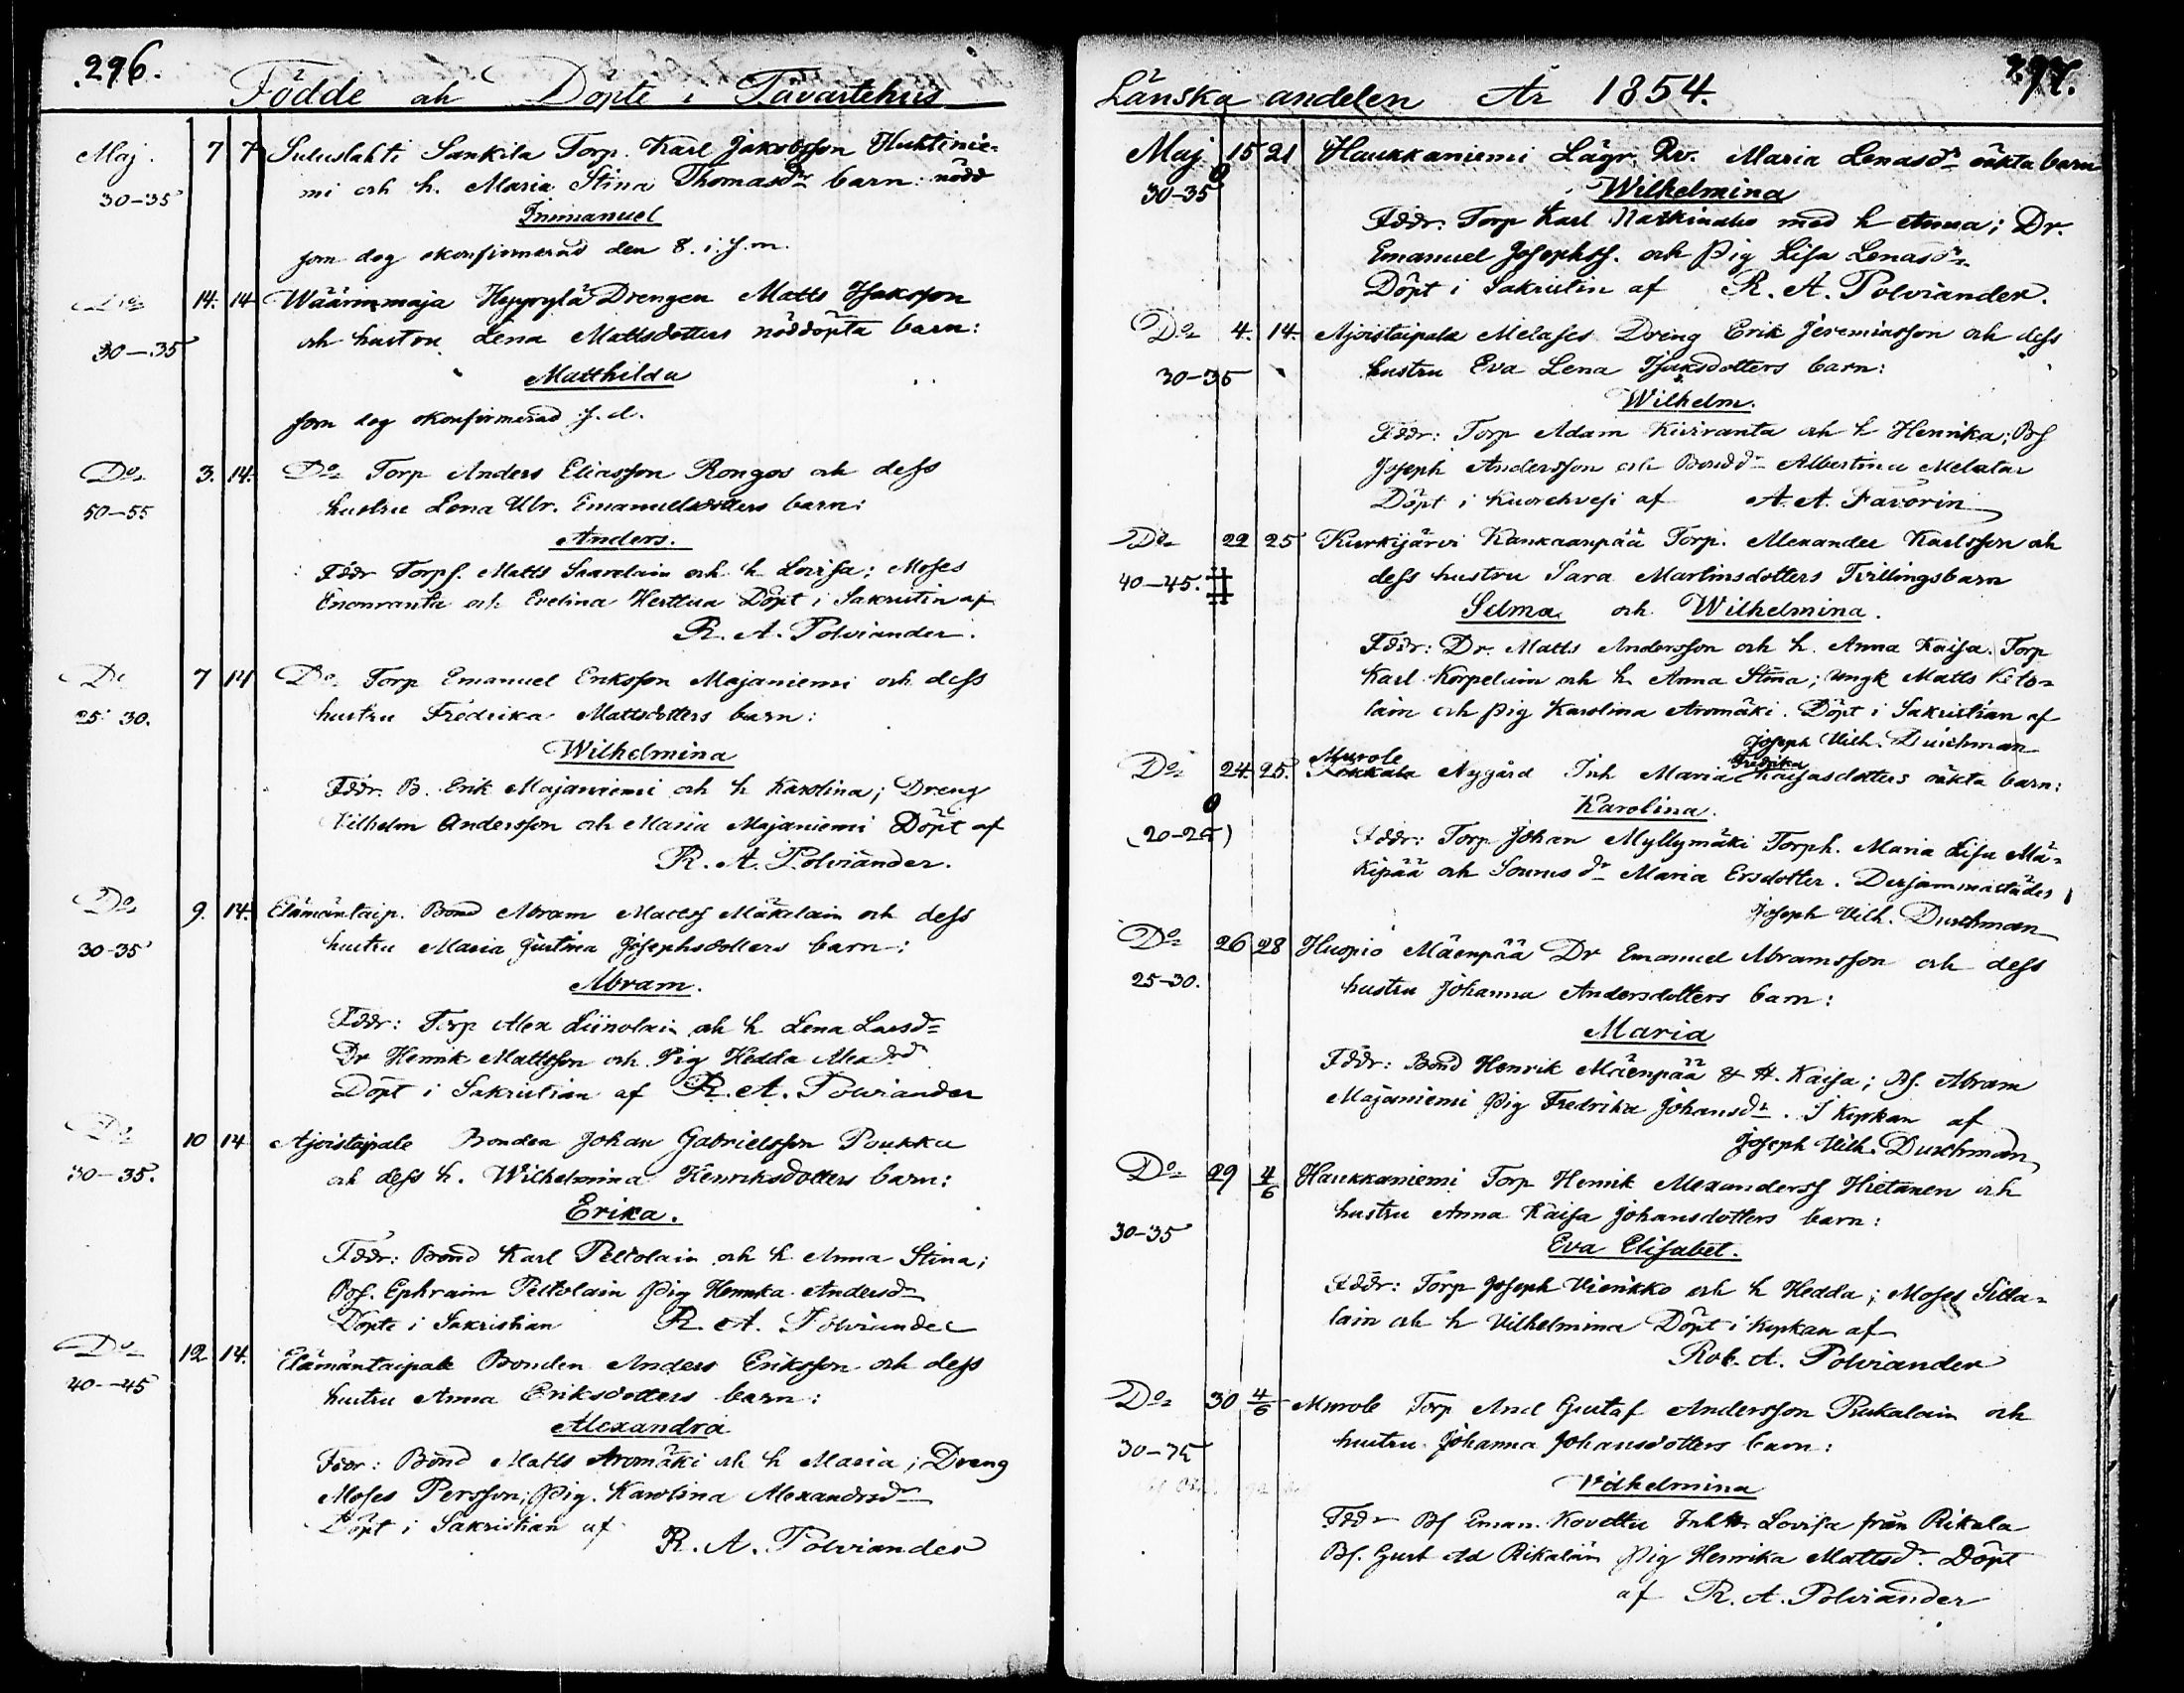 296.
Födde och Döpte i Tavastehus
Maj. 7 7 Suluslahti Sankila Torp. Karl Jakobsson Huhtinie-
30-35 mi och h. Maria Stina Thomasdr barn: nöd
Immanuel
som dog okonfirmerad den 8. i. s. m.
Do 14. 14 Wäärinmaja Hyprylä Drengen Matts Isaksson
30-35 och hustru Lena Mattsdotters nöddöpta barn:
Matthilda
som dog okonfirmerad s. d.
Do 3. 14. Do Torp Anders Eliasson Rongos och dess
50-55 hustru Lena Ulr. Emanuelsdotters barn:
Anders.
Fddr Torps. Matts Saarelain och h Lovisa; Moses
Enonranta och Evelina Herttua Döpt i Sakristin af
R. A. Polviander.
Do 7 14 Do Torp Emanuel Eriksson Majaniemi och dess
25 30. hustru Fredrika Mattsdotters barn:
Wilhelmina
Fddr. B. Erik Majaniemi och h Karolina; Dreng
Vilhelm Andersson och Maria Majaniemi Döpt af
R. A. Polviander.
Do 9. 14. Elämäntaip. Bond Abram Mattss Mäkelain och dess
30-35 hustru Maria Justina Josephsdotters barn:
Abram.
Fddr: Torp Alex Liinolain och h Lena Larsdr
Dr Henrik Mattsson och Pig Hedda Alexdr
Döpt i Sakristian af R. A. Polviander
Do 10 14 Ajoistaipale Bonden Johan Gabrielsson Poukka
30-35. och dess h. Wilhelmina Henriksdotters barn:
Erika.
Fddr: Bond Karl Peltolain och h Anna Stina;
Bs. Ephraim Peltolain Pig Henrika Andersdr
Döpte i Sakristian R. A. Polviander
Do 12 14. Elämäntaipale Bonden Anders Eriksson och dess
40-45 hustru Anna Eriksdotters barn:
Alexandra
Fddr: Bond Matts Aromäki och h Maria; Dreng
Moses Persson; Pig. Karolina Alexandrsdr
Döpt i Sakristian af
R. A. Polviander
297.
Länska andelen År 1854.
Maj 15 21 Haukkaniemi Lägr. Qv. Maria Lenasdr oäkta barn
30-35 Wilhelmina
Fddr. Torp Karl med h Anna; Dr.
Emanuel Josephss. och Pig Lisa Lenasdr
Döpt i Sakristin af R. A. Polviander.
Do 4. 14. Ajoistaipala Melases Dreng Erik Jeremiasson och dess
30-35 hustru Eva Lena Isaksdotters barn:
Wilhelm.
Fddr: Torp Adam Kiviranta och h Henrika; Bs
Joseph Andersson och Bondd Albertina Melatar
Döpt i Kuorehvesi af A. A. Favorin
Do 22 25 Kurkijärvi Kankaanpää Torp. Alexander Karlsson och
40-45. dess hustru Sara Martinsdotters Tvillingsbarn
Selma och Wilhelmina.
Fddr: Dr. Matts Andersson och h. Anna Kaisa. Torp
Karl Korpelain och h Anna Stina; Ungk Matts Keto-
lain och pig Karolina Aromäki. Döpt i Sakristian af
Joseph Vilh. Durchman
Murole Fredrika
Do 24. 25. Nygård Inh Maria Kaisasdotters oäkta barn:
Karolina.
(20-25) Fddr: Torp Johan Myllymäki Torph. Maria Lisa Mä-
kipää och dr Maria Ersdotter. Dersammastädes
Joseph Vilh. Durchman
Do 26 28 Kuopio Mäenpää Dr Emanuel Abramsson och dess
25-30. hustru Johanna Andersdotters barn:
Maria
Fddr: Bond Henrik Mäenpää & H. Kaisa; Bs. Abram
Majaniemi Pig Fredrika Johansdr. I Kyrkan af
Joseph Vilh. Durchman
Do 29 4/6 Haukkaniemi Torp Henrik Alexanderss Hietanen och
30-35 hustru Anna Kaisa Johansdotters barn:
Eva Elisabet.
Fddr: Torp Joseph Vierikko och h Hedda; Moses Silla-
lain och h Vilhelmina Döpt i kyrkan af
Rob. A. Polviander
Do 30 4/6 Murole Torp And Gustaf Andersson Rukalain och
30-35 hustru Johanna Johansdotters barn:
Vilhelmina
Fddr Bs Eman. Kovettu Lovisa från Rikala
Bs. Gust Ad Rikalain Pig Henrika Mattsdr. Döpt
af R. A. Polviander